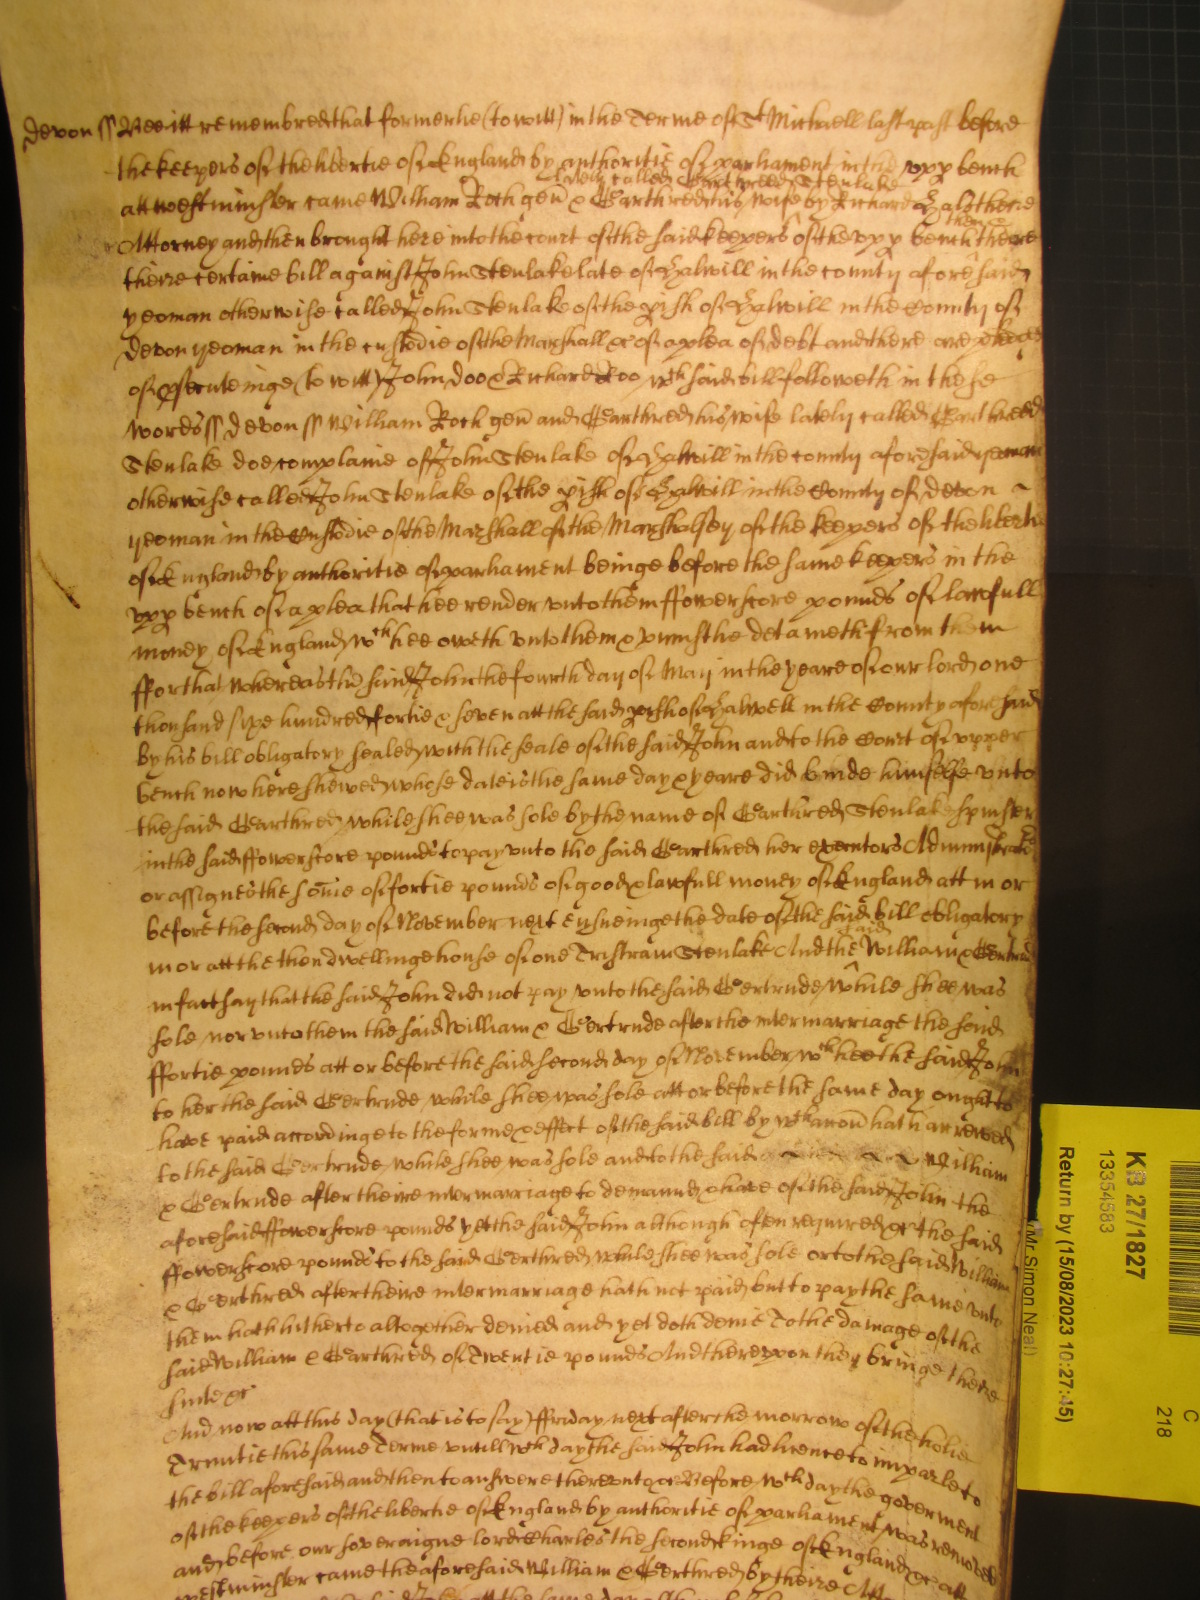 Devon ss Bee itt remembred that formerlie (to witt) in the Terme of St Michaell last past before
the keepers of the libertie of England by authoritie of parliament in the upp bench
lately called Garthred Stenlake
att westminster came William Rock gen & Garthred his wife by Richard
Attorney and then brought here into the court of the said keepers of the upp bench then
theire certaine bill against John Stenlake late of Halwill in the county aforesaid
yeoman otherwise called John Stenlake of the pish of Halwill in the County of
Devon yeoman in the custodie of the Marshall &c of a plea of debt and there are pledges
of psecuteinge (to witt) John Doo & Richard Roo wch said bill followeth in these
words ss Devon ss William Rock gen and Garthred his wife lately called Garthred
Stenlake doe complaine of John Stenlake of Halwill in the county aforesaid yeoman
otherwise called John Stenlake of the pish of Halwill in the County of Devon
yeoman in the Custodie of the Marshall of the Marshalsey of the keepers of the libertie
of England by authoritie of parliament beinge before the same keepers in the
upp bench of a plea that hee render unto them ffowerscore pounds of lawfull
money of England wch hee oweth unto them & uniustlie detaineth from them
ffor that whereas the said John the fourth day of May in the yeare of our lord one
thousand sixe hundred fortie & seven att the said pish of Halwell in the County aforesaid
by his bill obligatory sealed with the seale of the said John and to the Court of upper
bench now here shewed whose date is the same day & yeare did binde himselfe unto
the said Garthred while shee was sole by the name of Garthred Stenlake Spinster
in the said ffowerscore pounds to pay unto the said Garthred her executors Administrators
or assignes the some of fortie pounds of good & lawfull money of England att in or
before the second day of November next ensueinge the date of the said bill obligatory
said
in or att the then dwellinge house of one Tristram Stenlake And the William & Gertrud
in fact say that the said John did not pay unto the said Gertrude while shee was
sole nor unto them the said William & Gertrude after the intermarriage the said
ffortie pounds att or before the said second day of November wch hee the said John
to her the said Gertrude while shee was sole att or before the same day ought to
have paid accordinge to the forme & effect of the said bill by wch accon hath accrewed
to the said Gertrude while shee was sole and to the said William
& Gertrude after theire intermarriage to demaund & have of the said John the
aforesaid ffowerscore pounds yet the said John although often required &c the said
ffowerscore pounds to the said Gerthred while shee was sole or to the said William
& Gerthred after theire intermarriage hath not paid but to pay the same unto
them hath hitherto altogether denied and yet doth denie To the damage of the
said William & Garthred of Twentie pounds And thereupon they bringe theire
suite &c
And now att this day (that is to say) ffriday next after the morrow of the holie
Trinitie this same Terme untill wch day the said John had licence to imparle to
the bill aforesaid and then to answere thereunto &c Before wch day the goverment
of the keepers of the libertie of England by authoritie of parliament was removed
and before our soveraigne lord Charles the second kinge of England &c att
westminster came the aforesaid William & Gerthred by theire Att
KB 27/1827
13354583
Return by (15/08/2023 10:27:45)
(Mr Simon Neal)
C
218